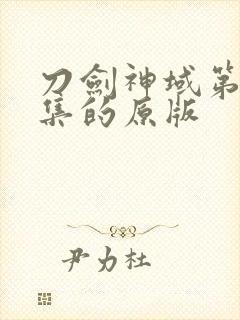 刀劍神域第
集的原版
尹力杜